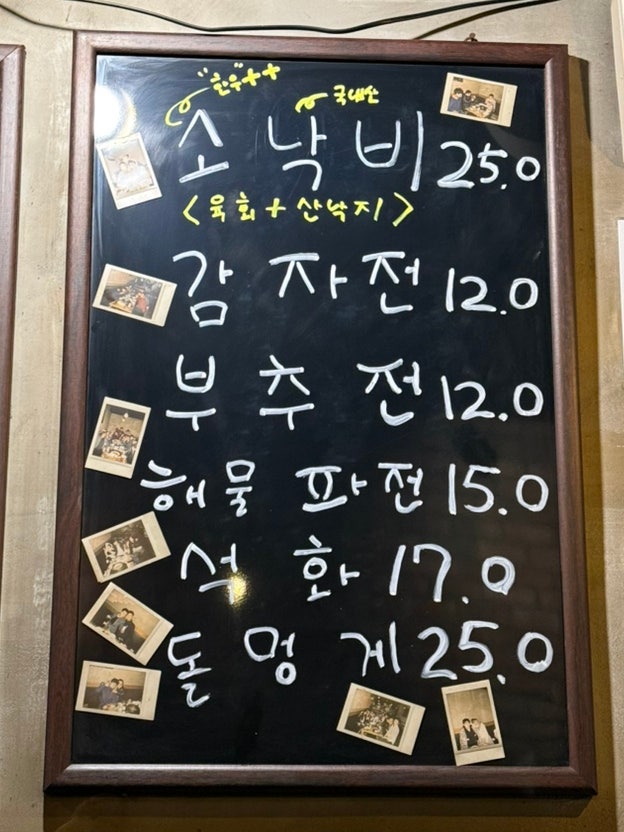 "한우++
국내산
소낙비 25.0
<육회+산낙지>
감자전 12.0
부추전 12.0
해물파전 15.0
석화 17.0
돌멍게 25.0